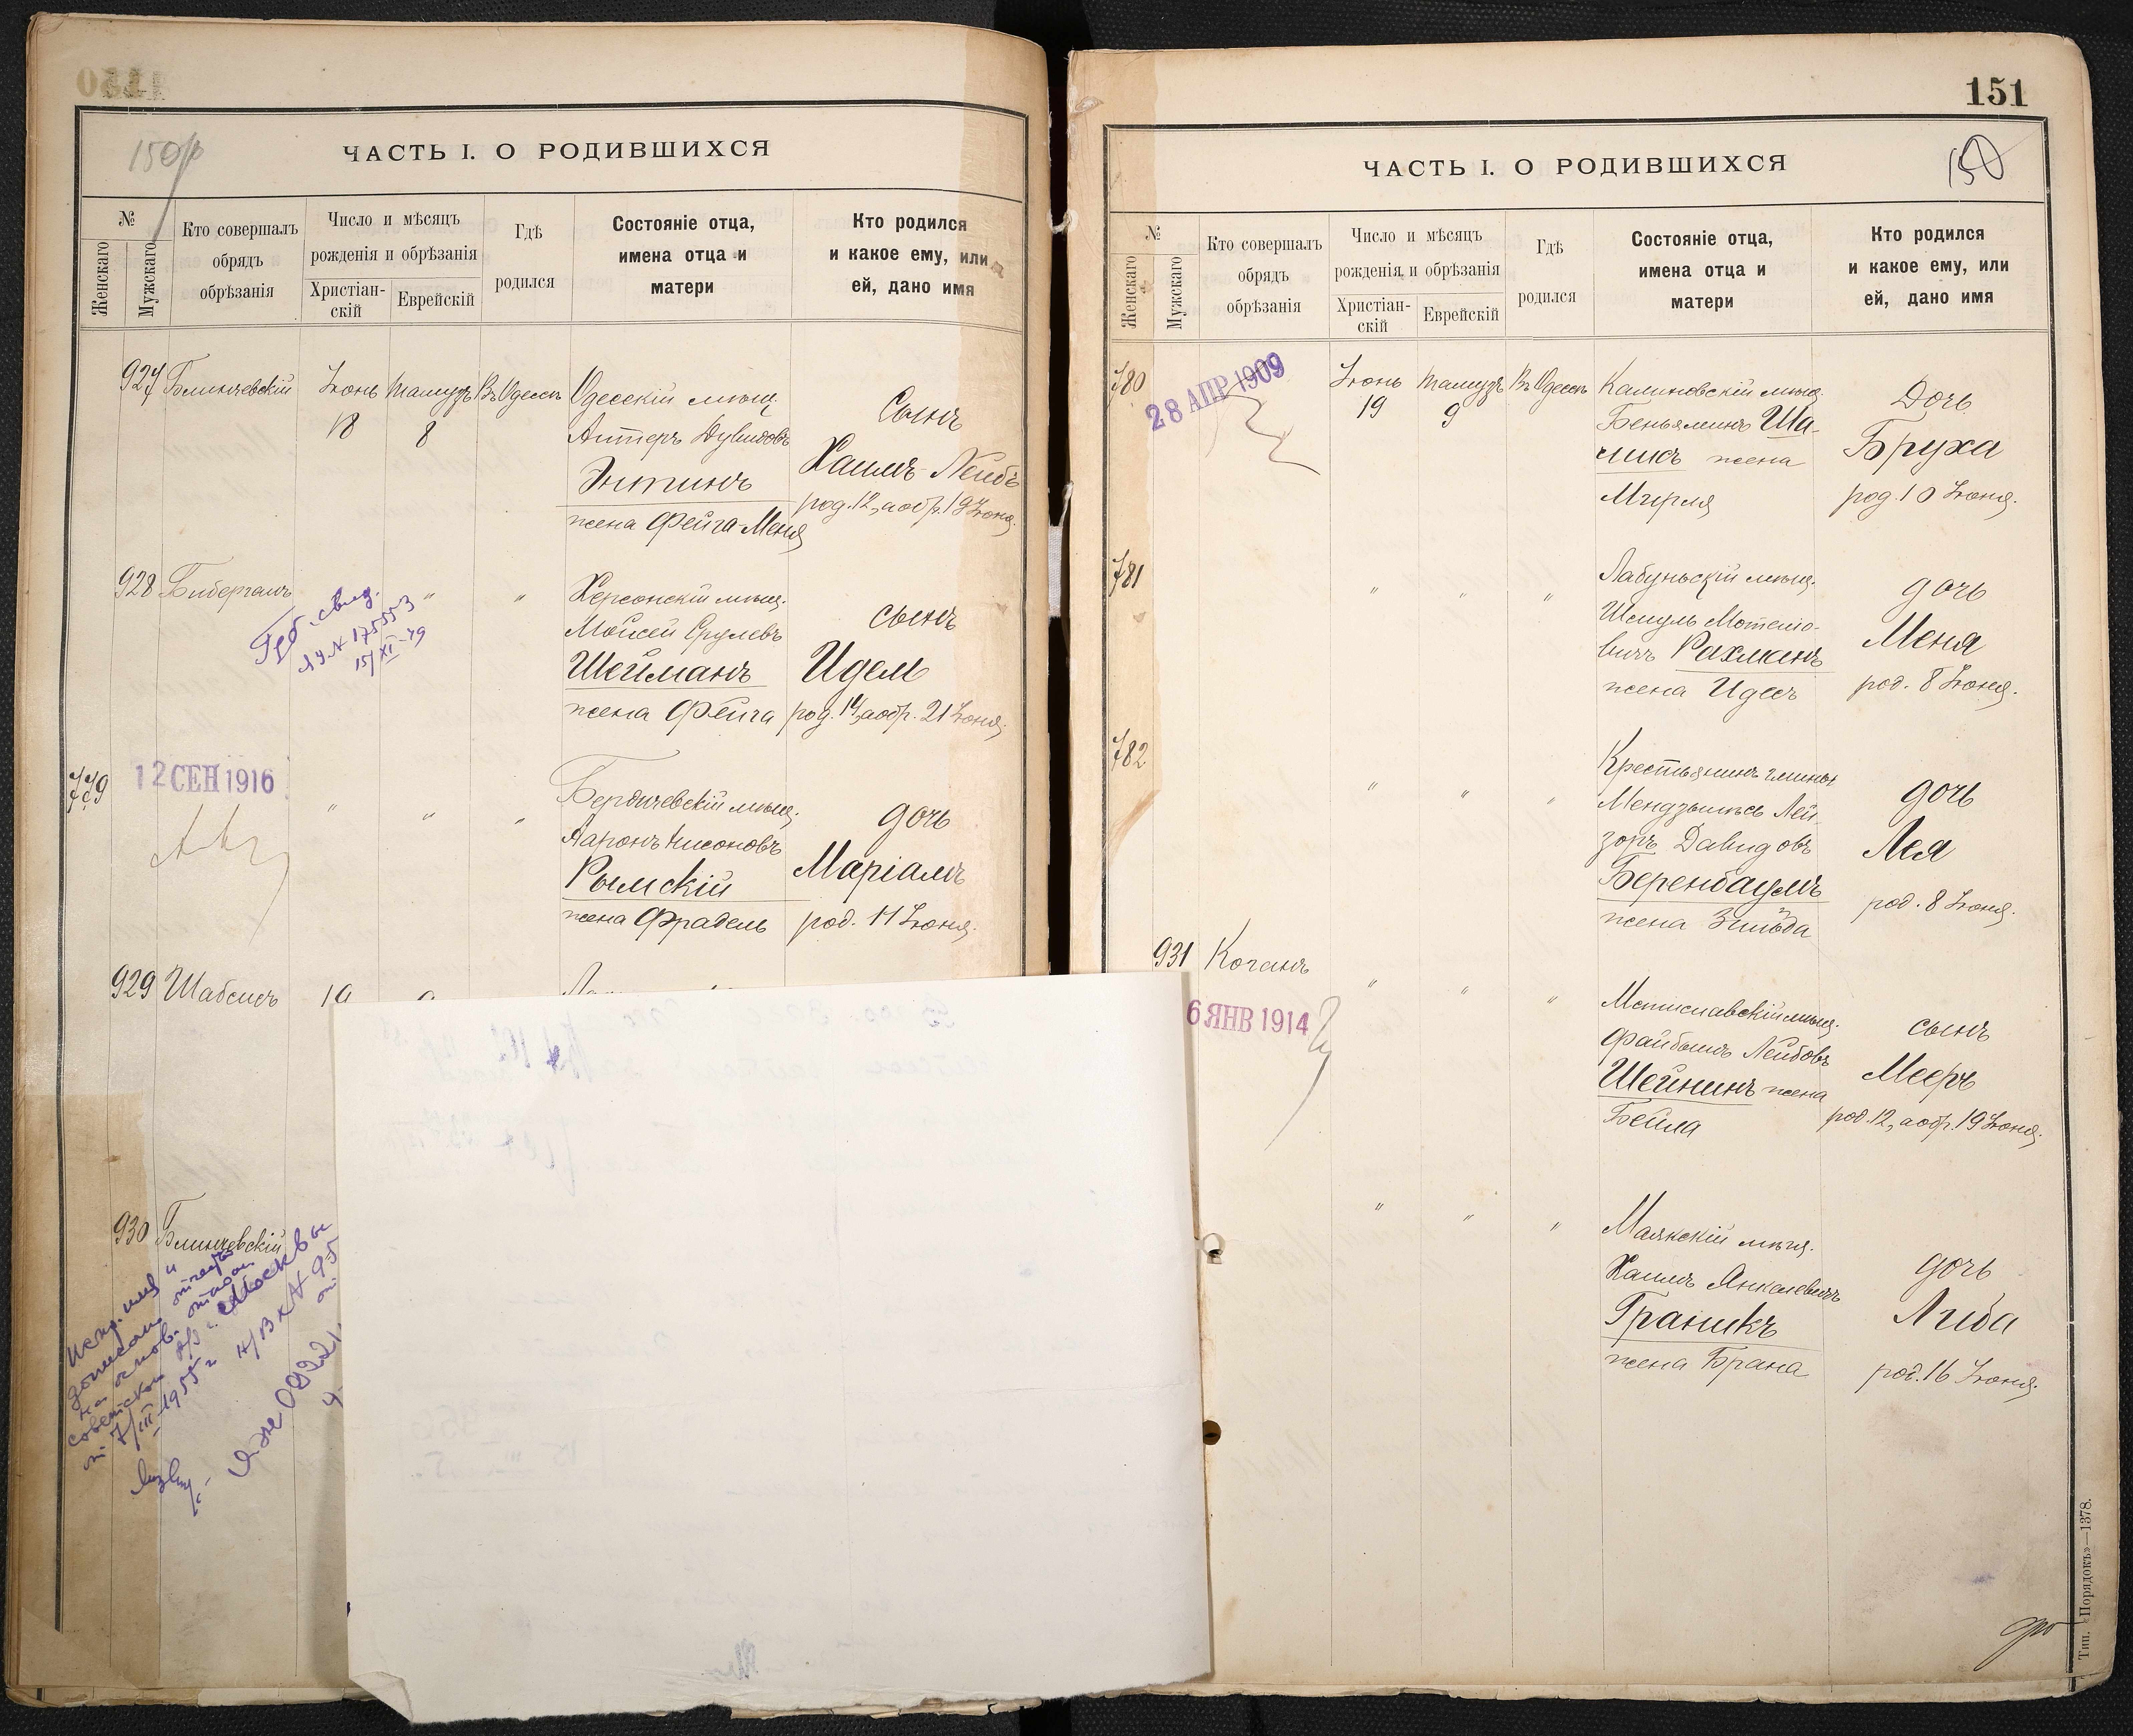 150
ЧАСТЬ I. О РОДИВШИХСЯ
№
Женскаго
Мужскаго
Кто совершалъ
обрядъ
обрѣзанія
Число и мѣсяцъ
рожденія и обрѣзанія
Христіан-
скій
Еврейскій
Гдѣ
родился
Состояніе отца,
имена отца и
матери
Кто родился
и какое ему, или
ей, дано имя
927 Блинчевскій Іюнь Тамузъ Въ Одессѣ
18 8
Одесскій мѣщ.
Антеръ Дувидовъ
Энтинъ
жена Фейга-Меня
Сынъ
Хаимъ-Лейбъ
род. 12, а обр. 19 Іюня.
928 Биберганъ " "
Херсонскій мѣщ.
Мойсей Срулевъ
Шейманъ
жена Фейга
сынъ
Идел
род. 14, а обр. 21 Іюня.
15/XI-49
779
12 СЕН 1916
" " "
Бердичевскій мѣщ.
Ааронъ Нисоновъ
Рымскій
жена Фрадель
дочь
Маріамъ
род. 11 Іюня.
929 Шабсисъ 19
930 Блинчевскій
на основ.
Москвы
от 7/III-1955 г
151
ЧАСТЬ I. О РОДИВШИХСЯ
150
№
Женскаго
Мужскаго
Кто совершалъ
обрядъ
обрѣзанія
Число и мѣсяцъ
рожденія и обрѣзанія
Христіан-
скій
Еврейскій
Гдѣ
родился
Состояніе отца,
имена отца и
матери
Кто родился
и какое ему, или
ей, дано имя
780
28 АПР 1909
Іюнь Тамузъ Въ Одессѣ
19 9
Калиновскій мѣщ.
Беньяминъ Ша-
жена
Мирля
Дочь
Бруха
род. 10 Іюня.
781 " " "
Лабуньскій мѣщ.
Шмуль Мотелио-
вичъ Рахманъ
жена Идесъ
дочь
Меня
род. 8 Іюня.
782 " " "
Крестьянинъ гмины
Лей-
зоръ Давидовъ
Беренбаумъ
жена Зильда
дочь
Лея
род. 8 Іюня.
931 Коганъ " " "
6 ЯНВ 1914
Мстиславскій мѣщ.
Файбышъ Лейбовъ
Шейнинъ жена
Бейла
сынъ
Мееръ
род. 12, а обр. 19 Іюня.
" " "
Маякскій мѣщ.
Хаимъ Янкелевичъ
Граникъ
жена Брана
дочь
Либа
род. 16 Іюня.
Тип. «Порядокъ»—1378.